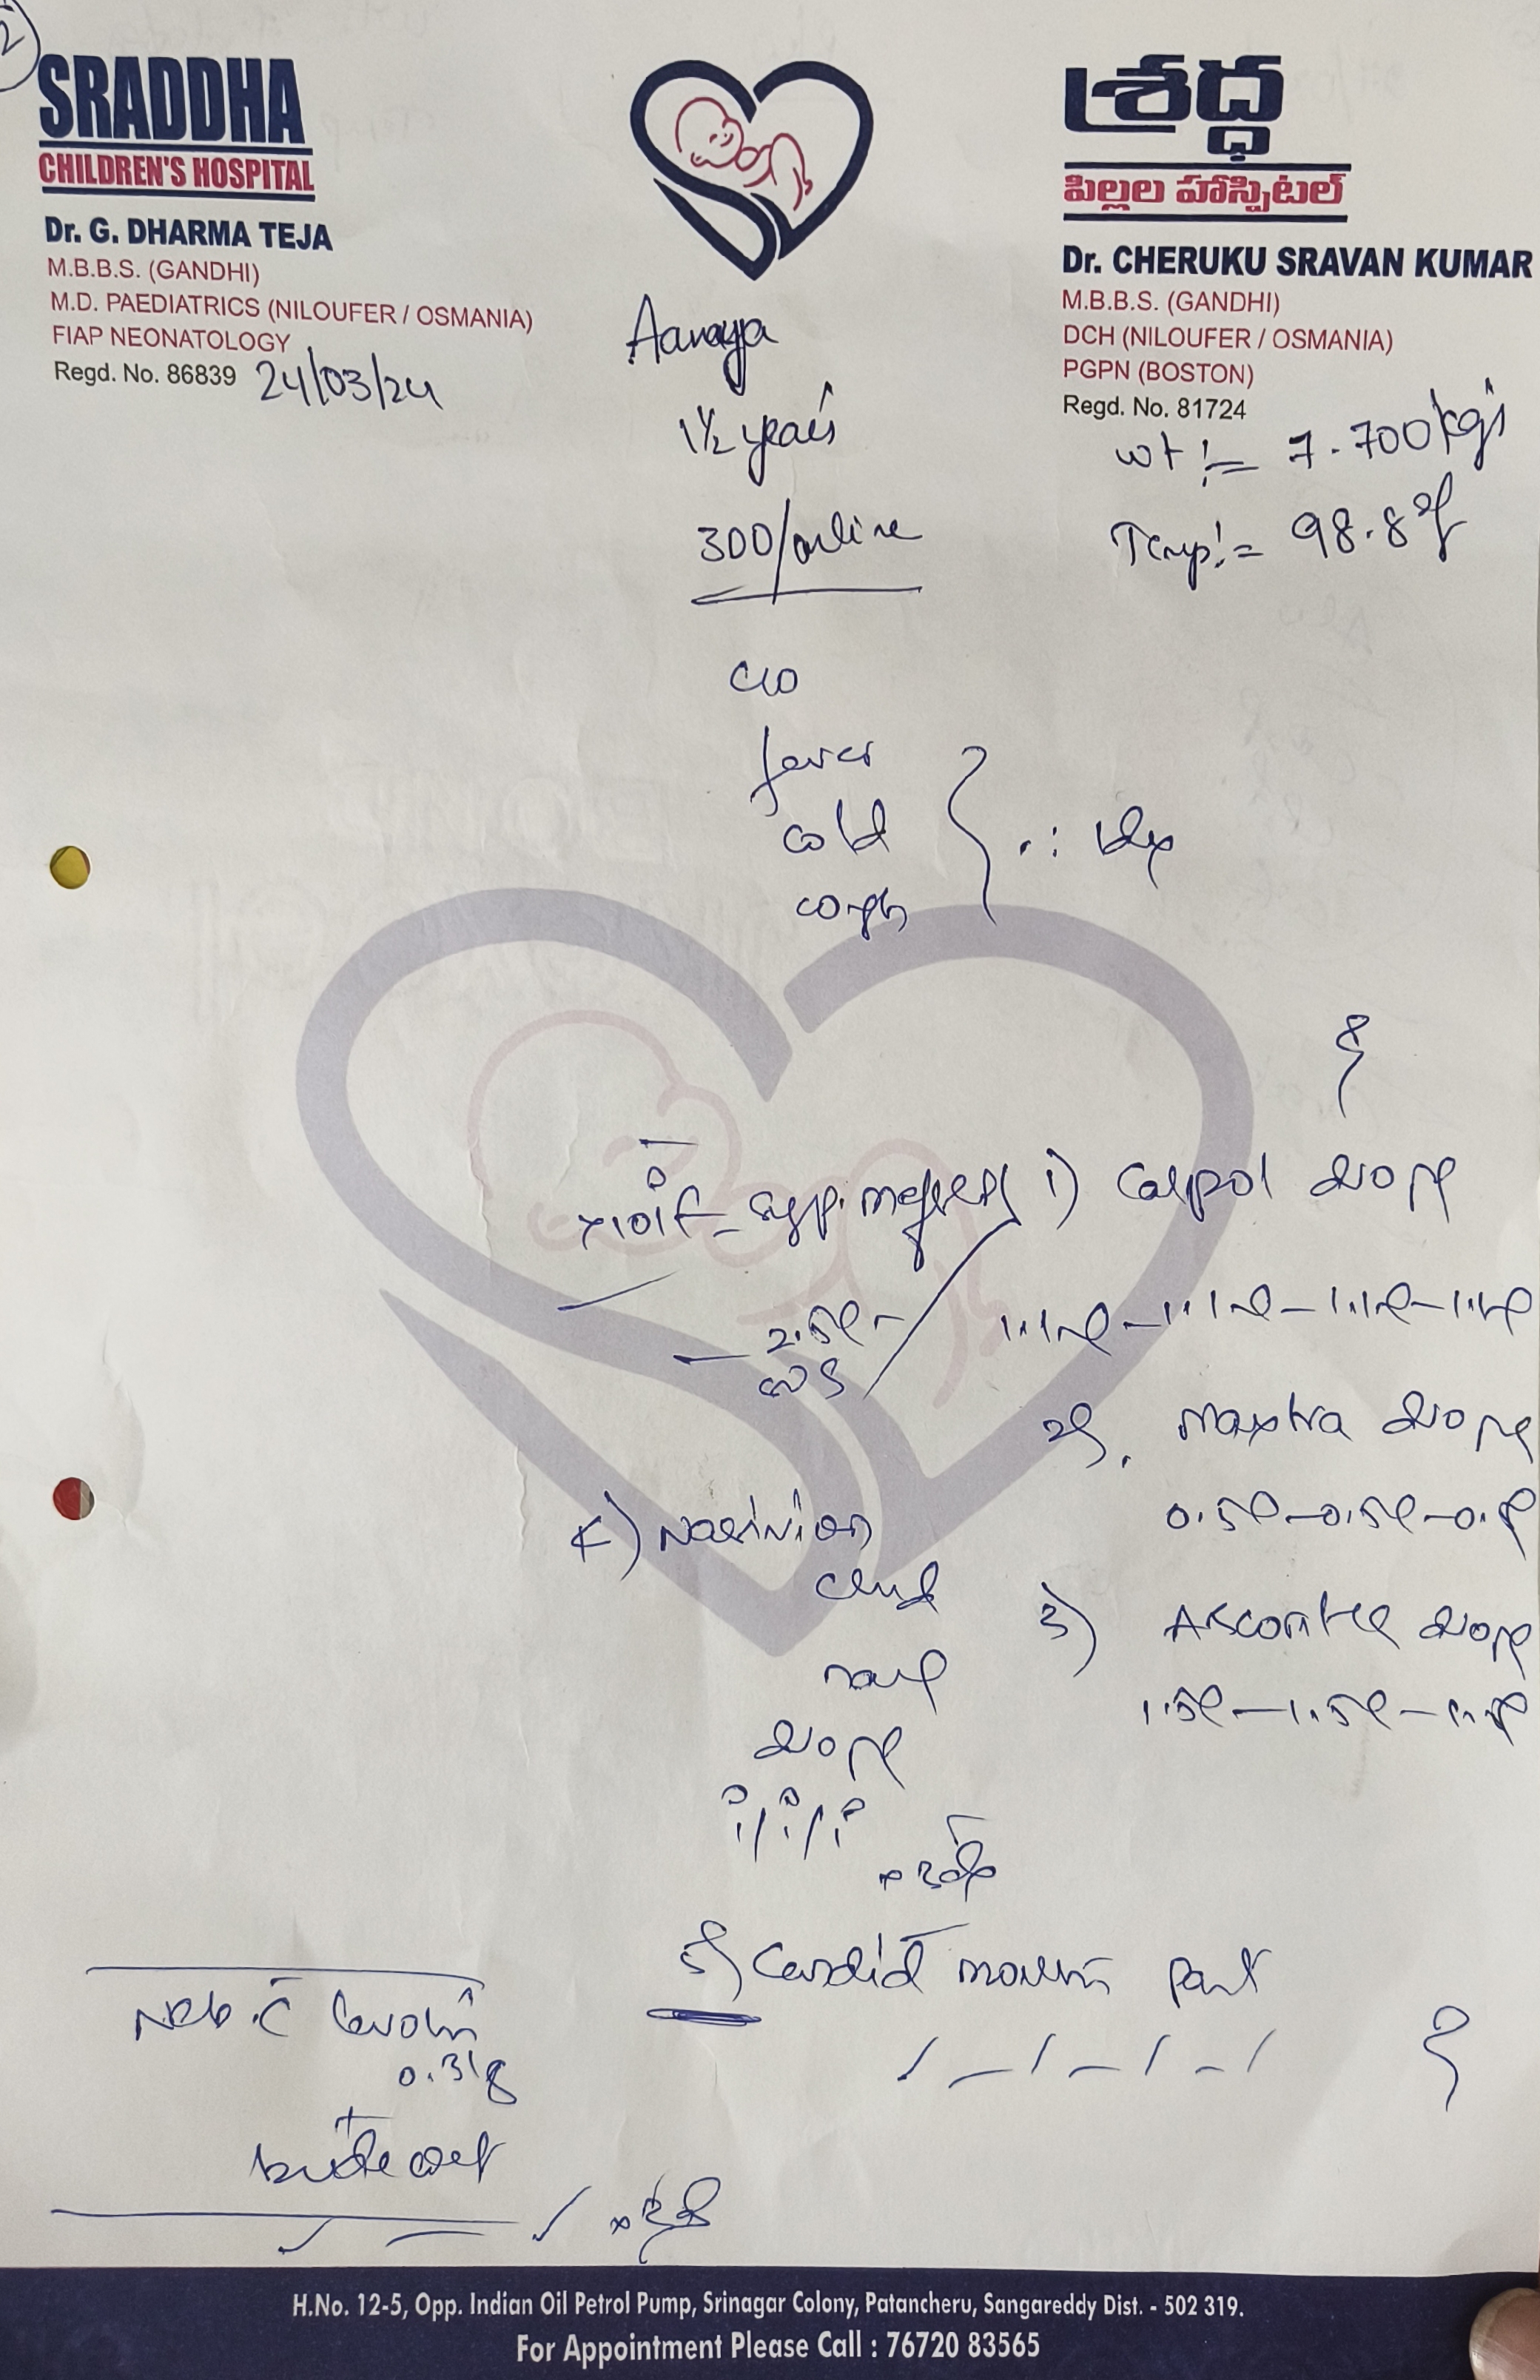 2
SRADDHA
CHILDREN'S HOSPITAL
Dr. G. DHARMA TEJA
M.B.B.S. (GANDHI)
M.D. PAEDIATRICS (NILOUFER / OSMANIA)
FIAP NEONATOLOGY
Regd. No. 86839
24/03/24
శ్రద్ధ
పిల్లల హాస్పిటల్
Dr. CHERUKU SRAVAN KUMAR
M.B.B.S. (GANDHI)
DCH (NILOUFER / OSMANIA)
PGPN (BOSTON)
Regd. No. 81724
Aaraya
1½ years
300/online
wt := 7.700kgs
Temp:= 98.8°f
c/o
fever
cold
cough
1) Calpol drops
2.5ml
1.1ml - 1.1ml - 1.1ml - 1.1ml
2) Maxtra drops
0.5ml - 0.5ml - 0.5ml
3) Ascoril drops
1.5ml - 1.5ml
4) Nasivion
child
drops
5) Candid mouth paint
Neb c̄ Levolin
0.31
+
budecort
H.No. 12-5, Opp. Indian Oil Petrol Pump, Srinagar Colony, Patancheru, Sangareddy Dist. - 502 319.
For Appointment Please Call : 76720 83565